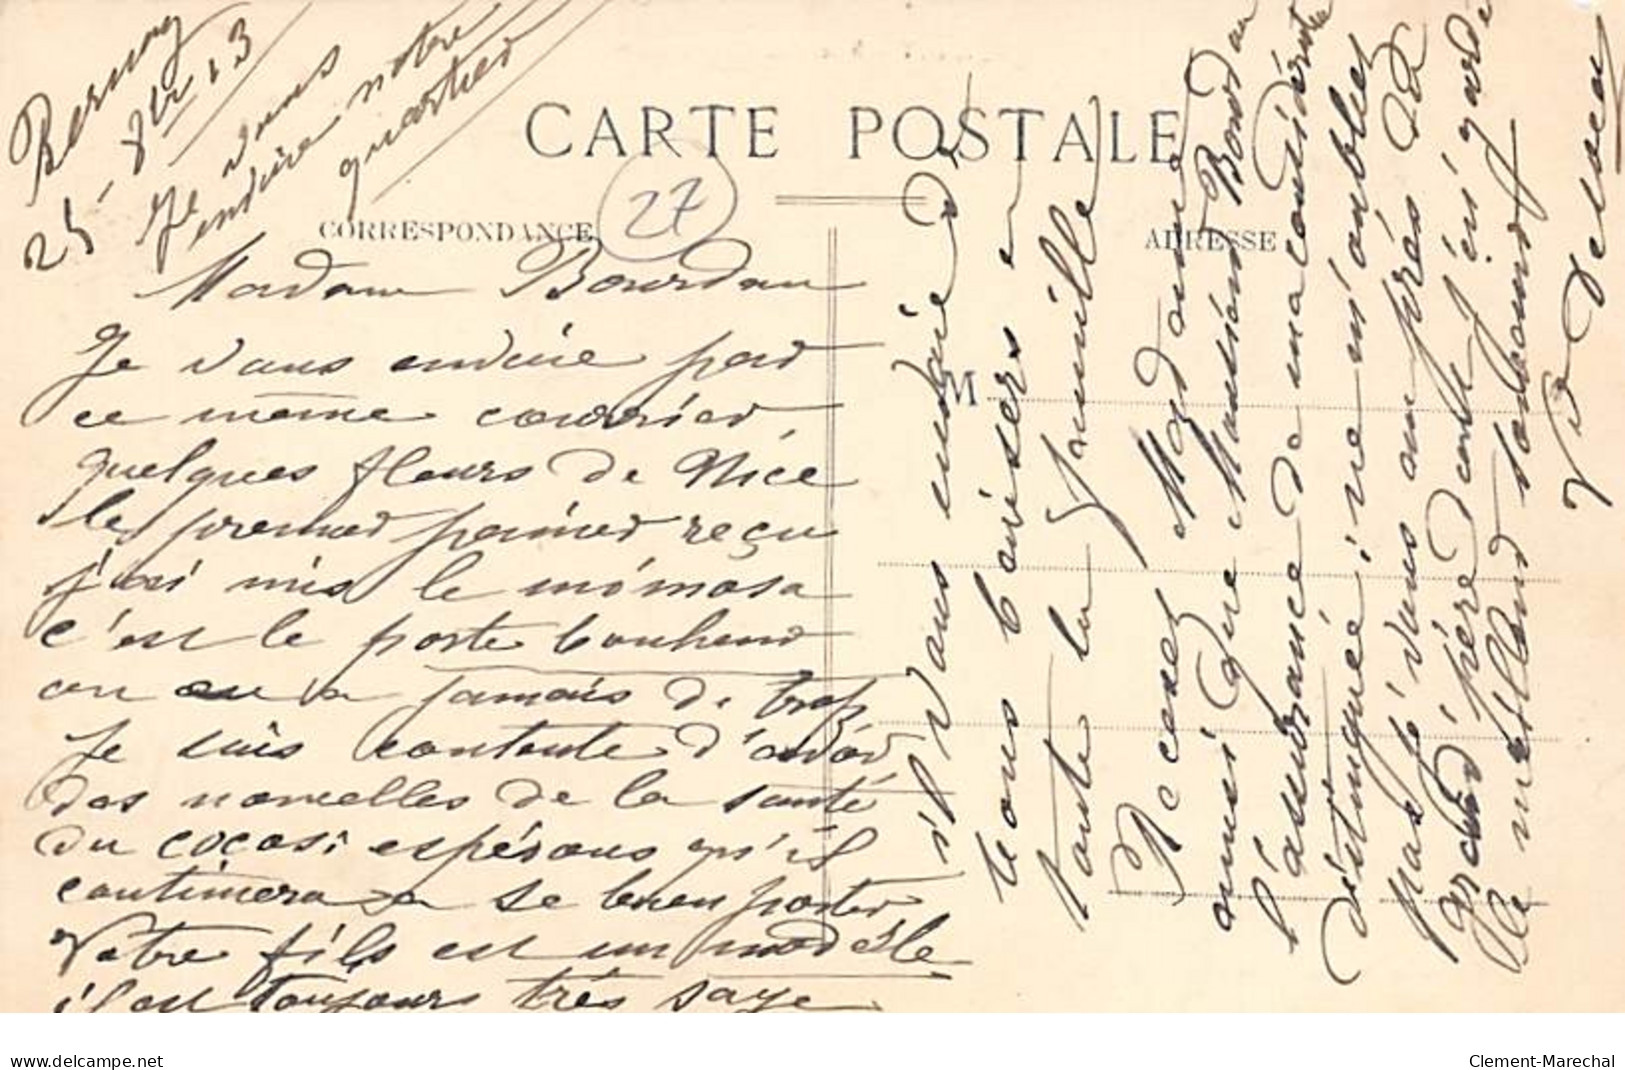 Bernay
25 - 8bre 13
Je vous
envoie notre
quartier
CARTE POSTALE
27
CORRESPONDANCE
ADRESSE
M
Madame Bourdon
Je vous envoie par
ce même courrier,
quelques fleurs de Nice
le premier panier reçu
j'ai mis le mimosa
c'est le porte bonheur
on en a jamais de trop,
Je suis contente d'avoir
des nouvelles de la santé
du espérons qu'il
continuera a se bien porter
Votre fils est un modèle
il est toujours très sage
il vous envoie d
tous baisers
toute la famille
Recevez Madame
ainsi que Monsieur Bourdon
l'assurance de ma considération
distinguée; ne m'oubliez
pas je vous prie près du
grand père dont j'ai gardé
le meilleur souvenir
Vve
www.delcampe.net
Clement-Marechal